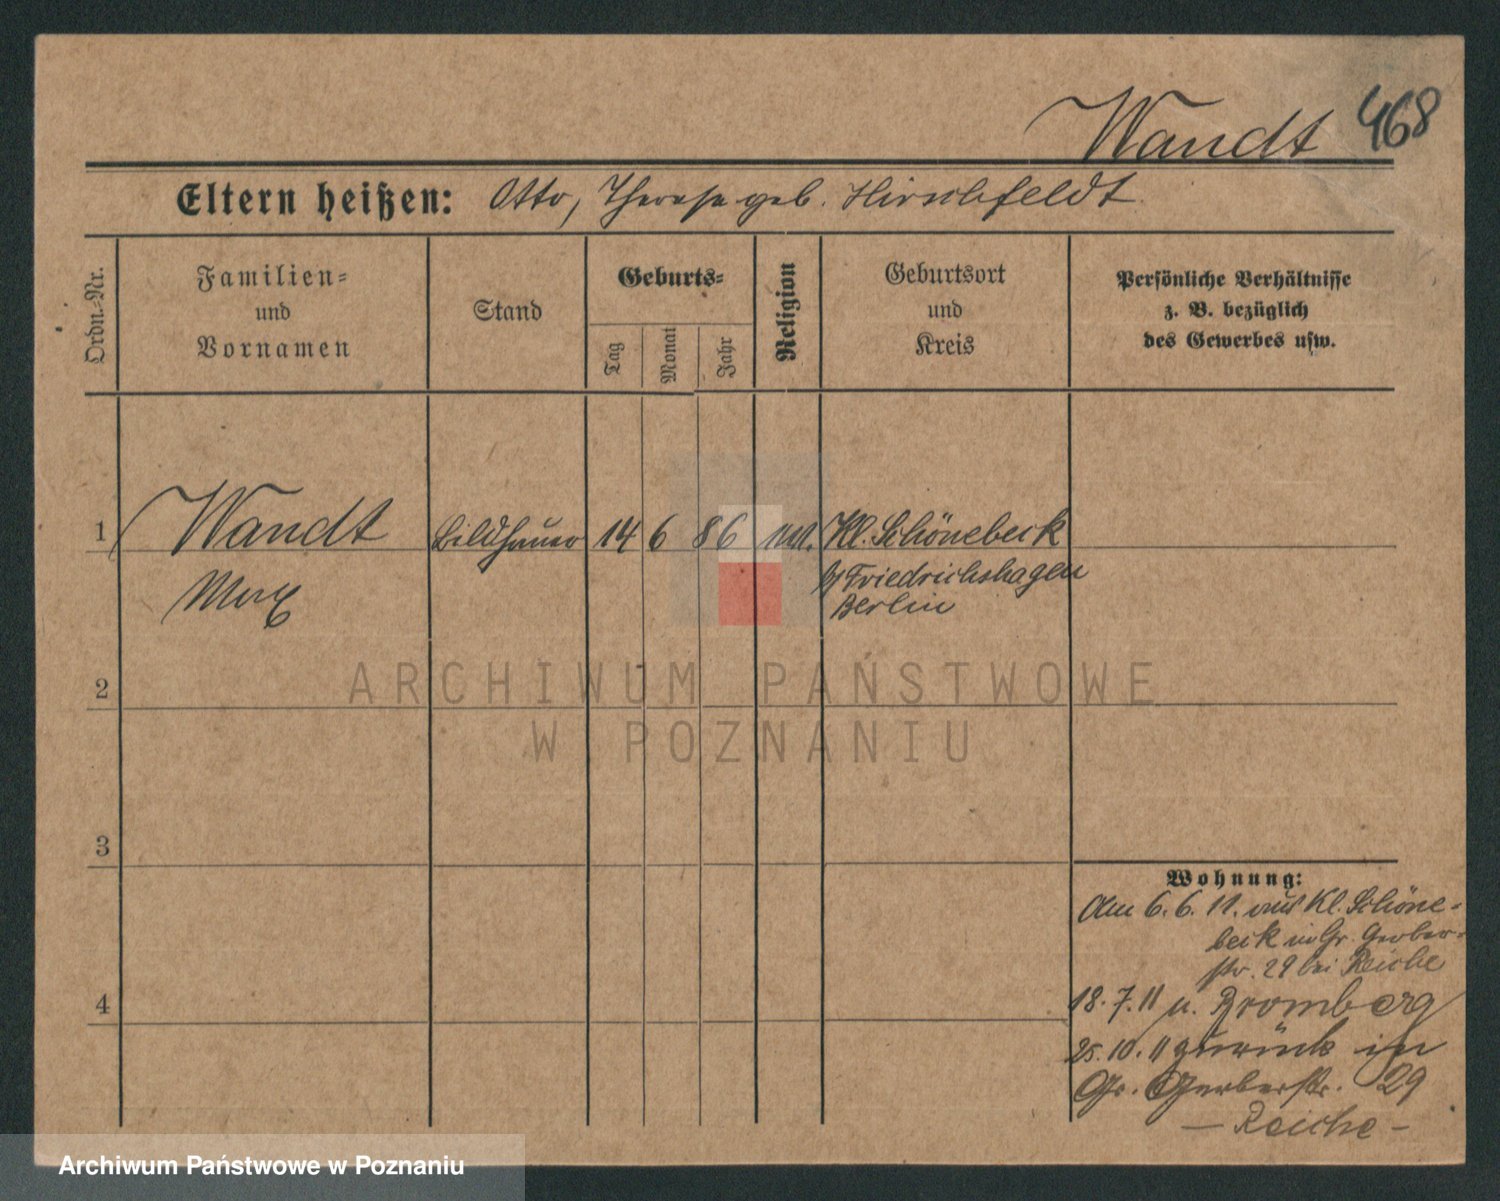 Wandt 468
Eltern heißen: Otto, Therese geb. Hirschfeldt.
Ordn.-Nr.
Familien-
und
Vornamen
Stand
Geburts-
Tag
Monat
Jahr
Religion
Geburtsort
und
Kreis
Persönliche Verhältnisse
z. B. bezüglich
des Gewerbes usw.
1 Wandt Bildhauer 14 6 86 Kl. Schönebeck
Max
b/ Friedrichshagen
Berlin
2
ARCHIWUM PAŃSTWOWE
W POZNANIU
3
Wohnung:
Am 6.6.11. aus Kl. Schöne-
beck in Gr. Gerber-
str. 29 bei Reiche
4
18.7.11 n. Bromberg
25.10.11 zurück in
Gr. Gerberstr. 29
- Reiche -
Archiwum Państwowe w Poznaniu